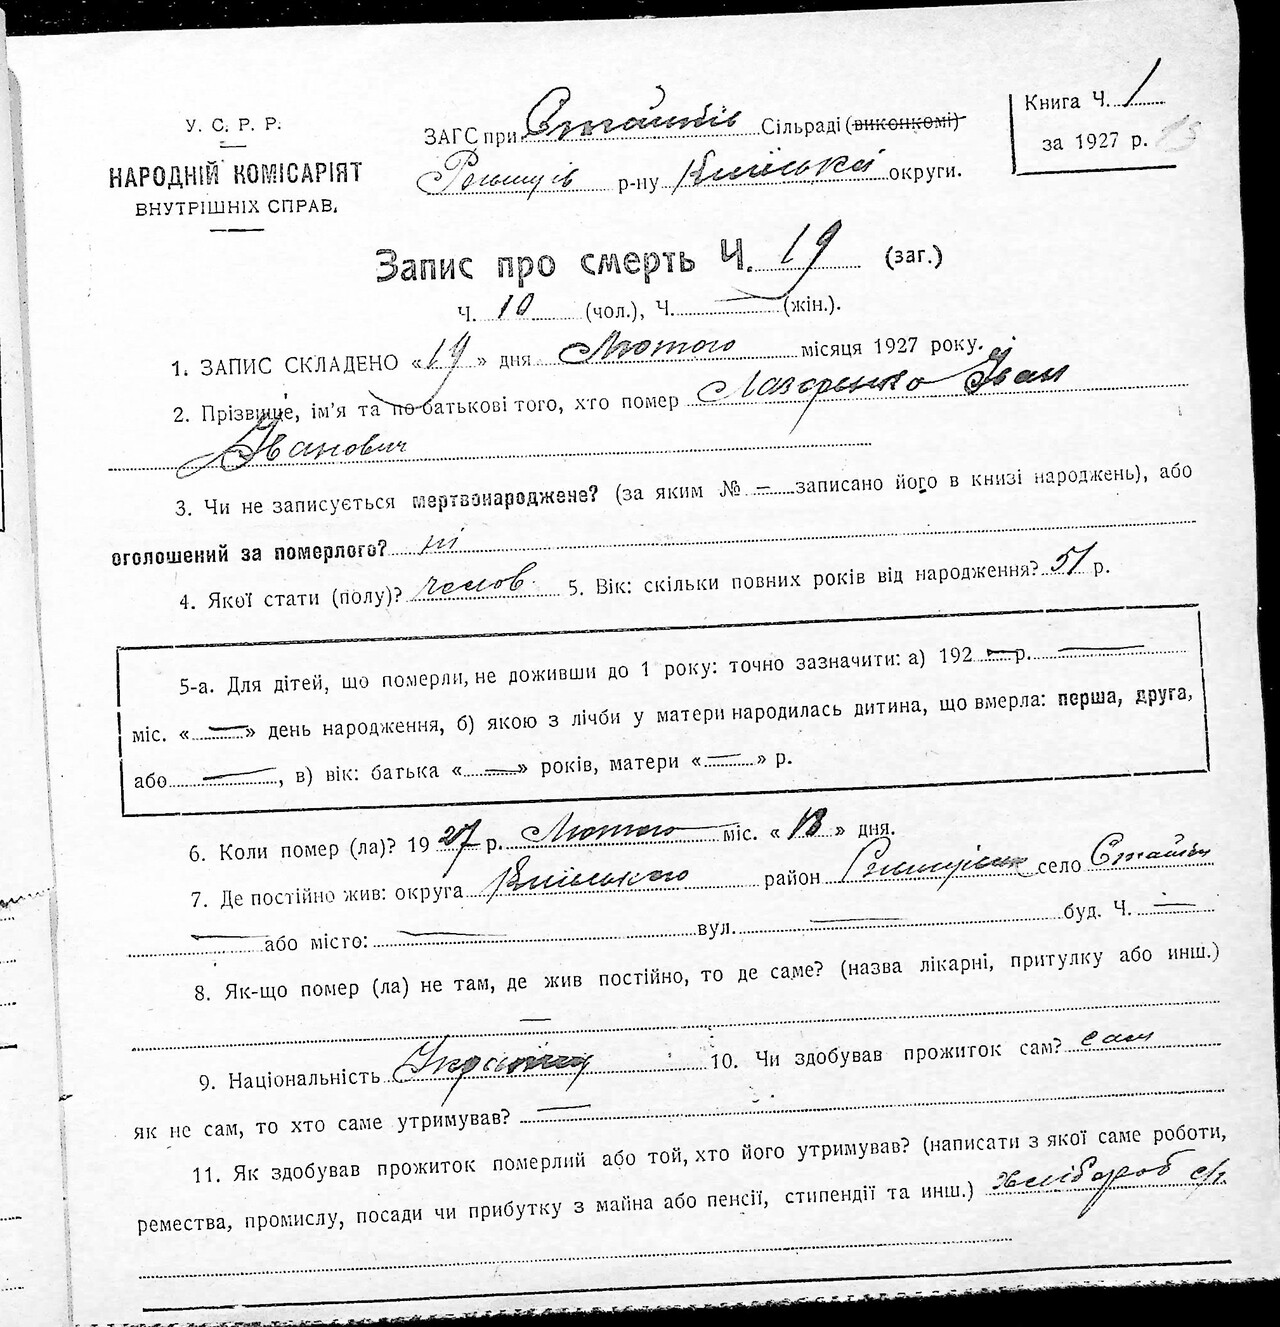 У. С. Р. Р.
НАРОДНІЙ КОМІСАРІЯТ
ВНУТРІШНІХ СПРАВ.
ЗАГС при Стайках Сільраді (виконкомі)
р-ну Київської округи.
Книга Ч. 1
за 1927 р.
Запис про смерть Ч. 19 (заг.)
Ч. 10 (чол.), Ч. — (жін.).
1. ЗАПИС СКЛАДЕНО «19» дня Лютого місяця 1927 року.
2. Прізвище, ім'я та по батькові того, хто помер Лазаренко Іван
Іванович
3. Чи не записується мертвонароджене? (за яким № — записано його в книзі народжень), або
оголошений за померлого? ні
4. Якої стати (полу)? чолов. 5. Вік: скільки повних років від народження? 51 р.
5-а. Для дітей, що померли, не доживши до 1 року: точно зазначити: а) 192 — р. —
міс. « — » день народження, б) якою з лічби у матери народилась дитина, що вмерла: перша, друга,
або —, в) вік: батька « — » років, матери « — » р.
6. Коли помер (ла)? 1927 р. Лютого міс. «18» дня.
7. Де постійно жив: округа Київського район село
— або місто: — вул. — буд. Ч. —
8. Як-що помер (ла) не там, де жив постійно, то де саме? (назва лікарні, притулку або инш.)
—
9. Національність 10. Чи здобував прожиток сам? сам
як не сам, то хто саме утримував? —
11. Як здобував прожиток померлий або той, хто його утримував? (написати з якої саме роботи,
ремества, промислу, посади чи прибутку з майна або пенсії, стипендії та инш.) Хлібороб с/г.